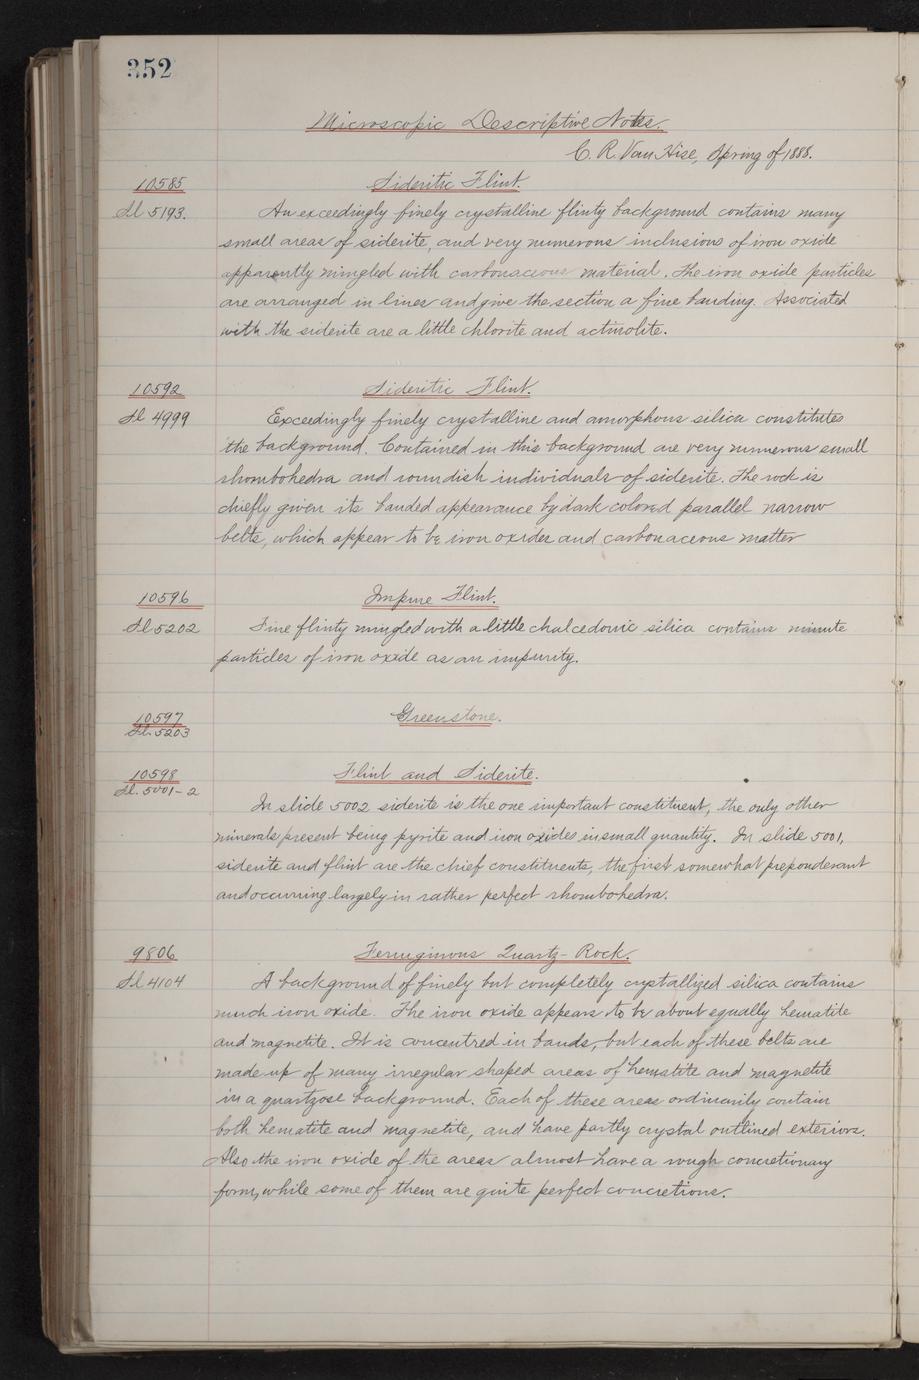 352
Microscopic Descriptive Notes.
C. R. Van Hise, Spring of 1888.
10585
Sideritic Flint.
Sl 5193.
An exceedingly finely crystalline flinty background contains many
small areas of siderite, and very numerous inclusions of iron oxide
apparently mingled with carbonaceous material. The iron oxide particles
are arranged in lines and give the section a fine banding. Associated
with the siderite are a little chlorite and actinolite.
10592
Sideritic Flint.
Sl 4999
Exceedingly finely crystalline and amorphous silica constitutes
the background. Contained in this background are very numerous small
rhombohedra and roundish individuals of siderite. The rock is
chiefly given its banded appearance by dark colored parallel narrow
belts, which appear to be iron oxides and carbonaceous matter
10596
Impure Flint.
Sl 5202
Fine flinty mingled with a little chalcedonic silica contains minute
particles of iron oxide as an impurity.
10597
Greenstone.
Sl. 5203
10598
Flint and Siderite.
Sl. 5001-2
In slide 5002 siderite is the one important constituent, the only other
minerals present being pyrite and iron oxides in small quantity. In slide 5001,
siderite and flint are the chief constituents, the first somewhat preponderant
and occurring largely in rather perfect rhombohedra.
9806
Ferruginous Quartz-Rock.
Sl 4104
A background of finely but completely crystallized silica contains
much iron oxide. The iron oxide appears to be about equally hematite
and magnetite. It is concentred in bands, but each of these belts are
made up of many irregular shaped areas of hematite and magnetite
in a quartzose background. Each of these areas ordinarily contain
both hematite and magnetite, and have partly crystal outlined exteriors.
Also the iron oxide of the areas almost have a rough concretionary
form, while some of them are quite perfect concretions.